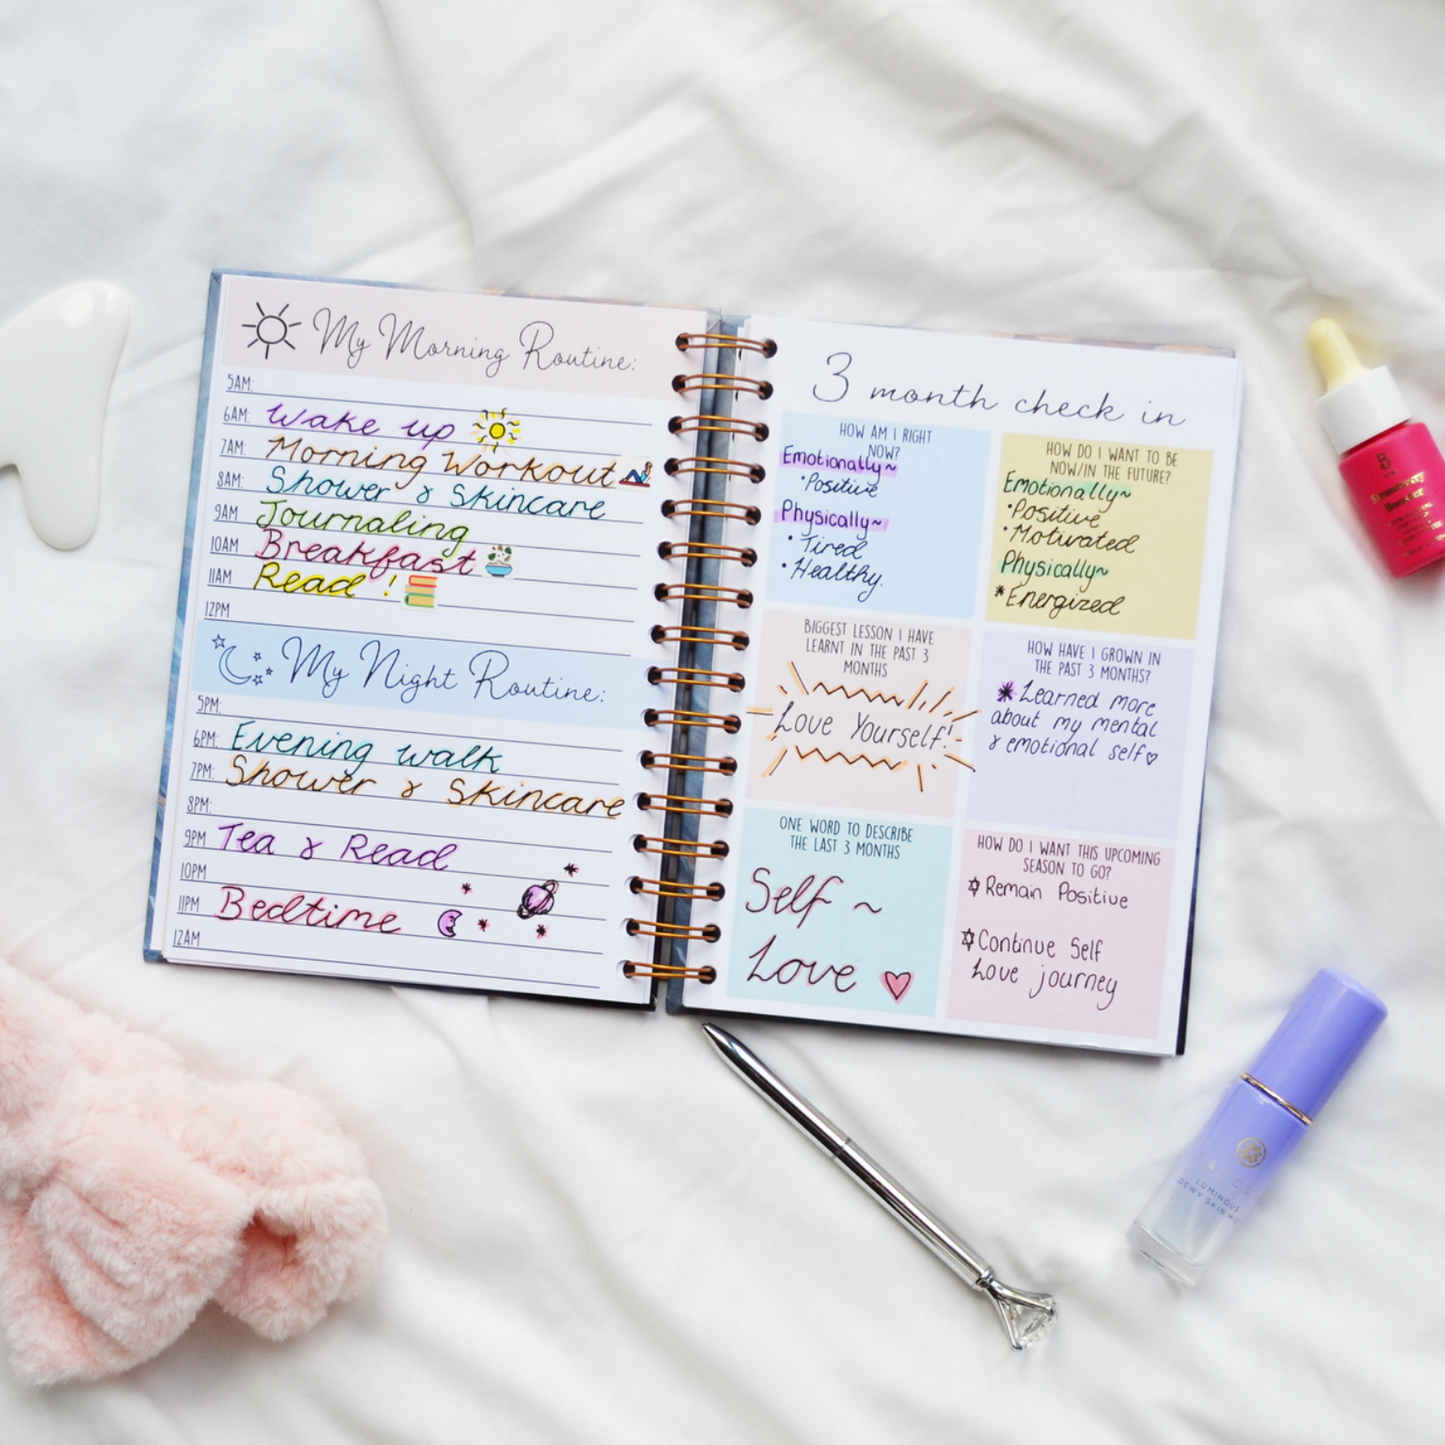 My Morning Routine:
5AM:
6AM: Wake up
7AM: Morning Workout
8AM: Shower & Skincare
9AM Journaling
10AM Breakfast
11AM Read !
12PM
My Night Routine:
5PM:
6PM: Evening walk
7PM: Shower & Skincare
8PM:
9PM Tea & Read
10PM
11PM Bedtime
12AM
3 month check in
HOW AM I RIGHT
NOW?
Emotionally~
• Positive
Physically~
• Tired
• Healthy.
HOW DO I WANT TO BE
NOW/IN THE FUTURE?
Emotionally~
• Positive
• Motivated
Physically~
* Energized
BIGGEST LESSON I HAVE
LEARNT IN THE PAST 3
MONTHS
Love Yourself!
HOW HAVE I GROWN IN
THE PAST 3 MONTHS?
* Learned more
about my mental
& emotional self♡
ONE WORD TO DESCRIBE
THE LAST 3 MONTHS
Self ~
Love
HOW DO I WANT THIS UPCOMING
SEASON TO GO?
✡ Remain Positive
✡ Continue Self
Love journey
B
Strawberry
Booster
LUMINOUS
DEWY SKIN